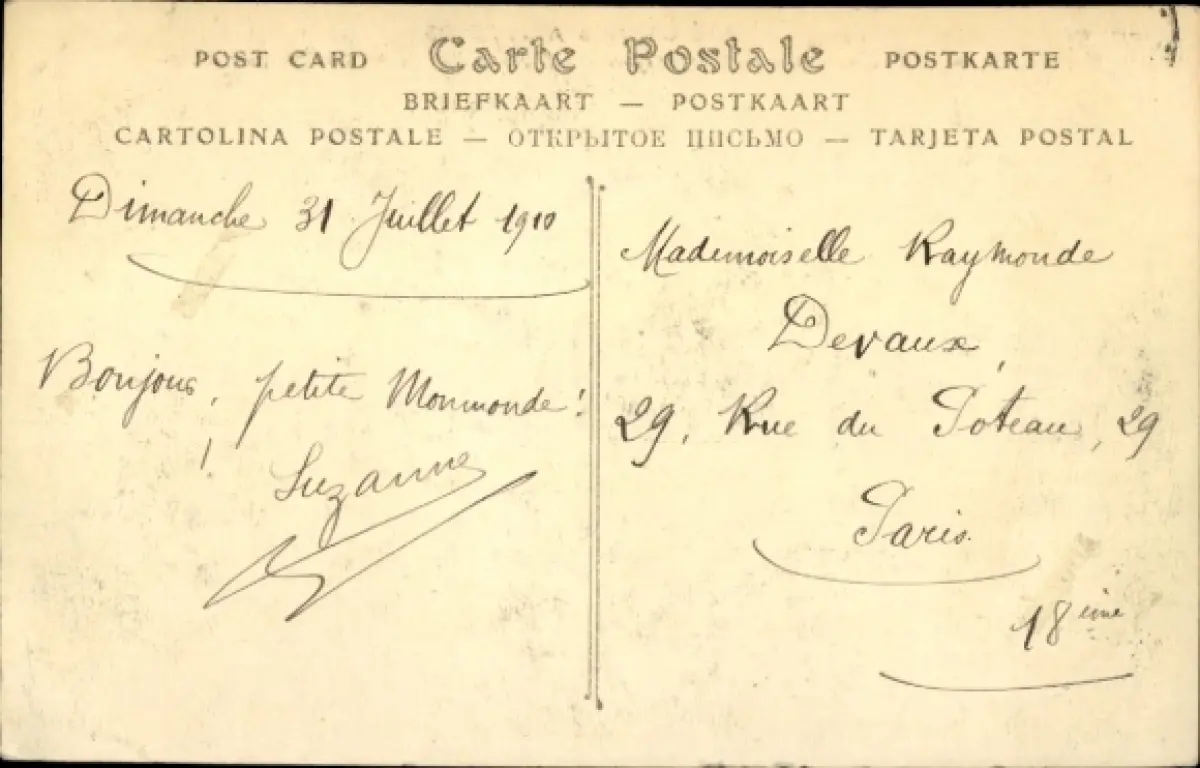 POST CARD Carte Postale POSTKARTE
BRIEFKAART — POSTKAART
CARTOLINA POSTALE — ОТКРЫТОЕ ПИСЬМО — TARJETA POSTAL
Dimanche 31 Juillet 1910
Bonjour, petite Monmonde!
Suzanne
Mademoiselle Raymonde
Devaux,
29, Rue du Poteau, 29
Paris.
18ème